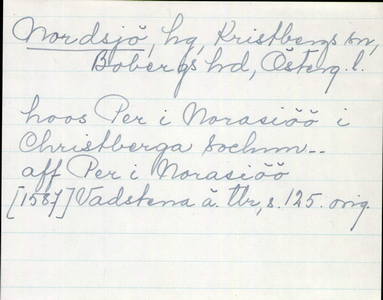 Nordsjö, hg, Kristbergs sn,
Bobergs hd, Österg. l.
hoos Per i Norasiöö i
Christberga Sochnn--
aff Per i Norasiöö
[1587] Vadstena ä. tbr, s. 125. orig.